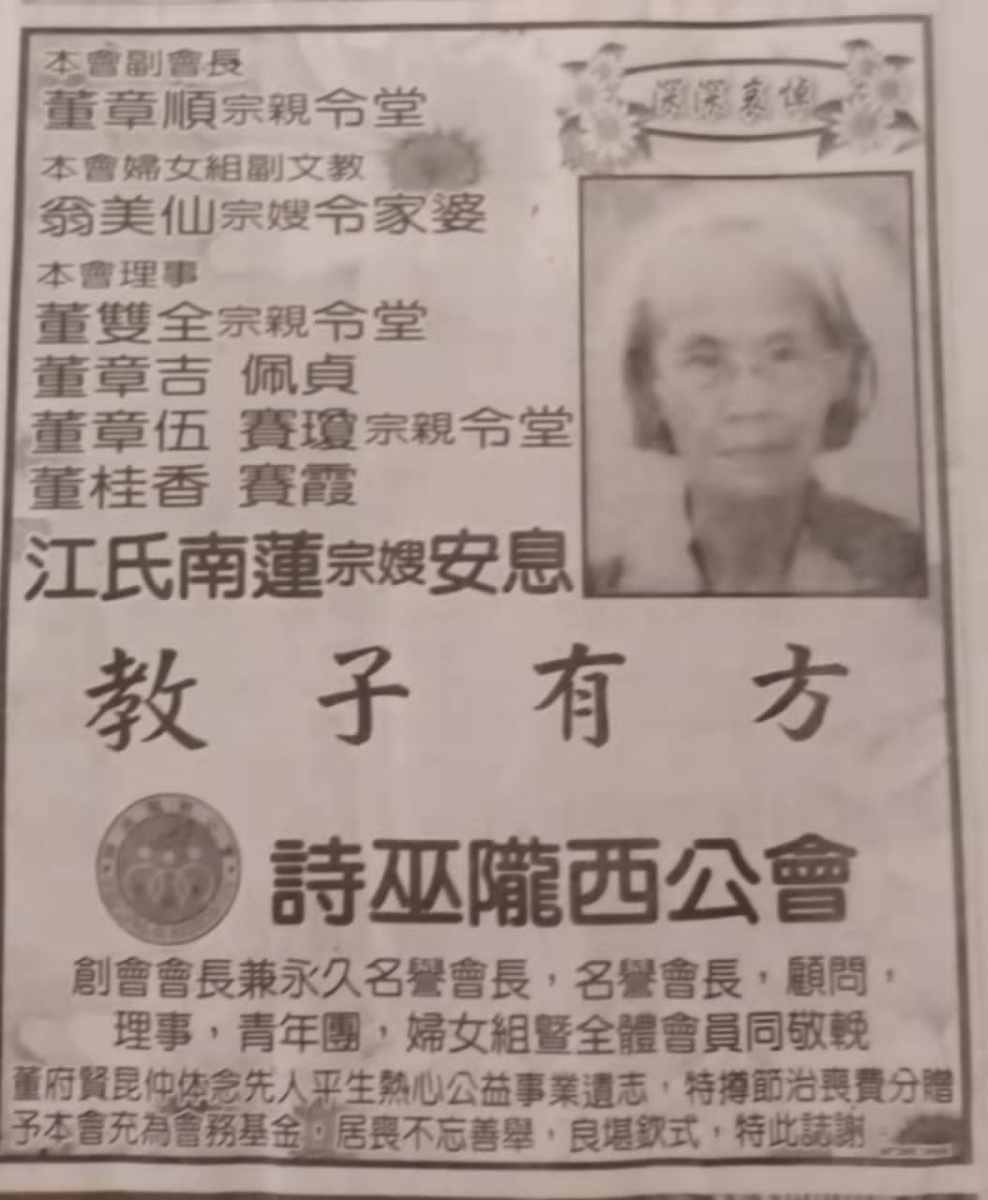 深深哀悼
本會副會長
董章順宗親令堂
本會婦女組副文教
翁美仙宗嫂令家婆，
本會理事
董雙全宗親令堂
董章吉 佩貞
董章伍 賽瓊宗親令堂
董桂香 賽霞
江氏南蓮宗嫂安息
教子有方
詩巫隴西公會
創會會長兼永久名譽會長，名譽會長，顧問，
理事，青年團，婦女組暨全體會員同敬輓
董府賢昆仲体念先人平生熱心公益事業遺志，特撙節治喪費分贈
予本會充為會務基金，居喪不忘善舉，良堪欽式，特此誌謝。